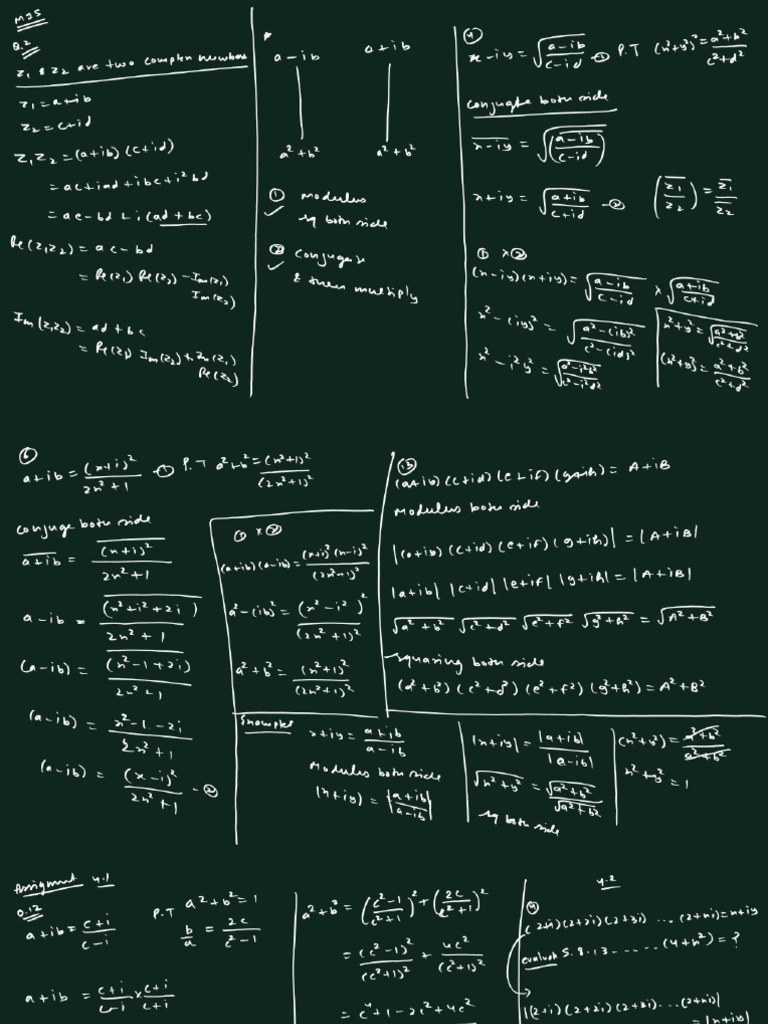 MIS
Q.2
Z₁ & Z₂ are two complex numbers
Z₁ = a+ib
Z₂ = c+id
Z₁Z₂ = (a+ib) (c+id)
= ac+iad+ibc+i²bd
= ac-bd+i(ad+bc)
Re(Z₁Z₂) = ac-bd
= Re(Z₁) Re(Z₂) - Im(Z₁) Im(Z₂)
Im(Z₁Z₂) = ad+bc
= Re(Z₁) Im(Z₂) + Im(Z₁) Re(Z₂)
a-ib a+ib
a²+b² a²+b²
① modulus
✓ sq both side
② conjugate
✓ & then multiply
④ x-iy = √((a-ib)/(c-id)) -① P.T (x²+y²)² = (a²+b²)/(c²+d²)
conjugate both side
\overline{x-iy} = \overline{√((a-ib)/(c-id))}
x+iy = √((a+ib)/(c+id)) -② \overline{(z₁/z₂)} = \overline{z₁}/\overline{z₂}
① x ②
(x-iy)(x+iy) = √((a-ib)/(c-id)) x √((a+ib)/(c+id))
x²-(iy)² = √((a²-(ib)²)/(c²-(id)²))
x²-i²y² = √((a²-i²b²)/(c²-i²d²))
x²+y² = √((a²+b²)/(c²+d²))
(x²+y²)² = (a²+b²)/(c²+d²)
⑥
a+ib = (x+i)²/(2x²+1) -① P.T a²+b² = (x²+1)²/(2x²+1)²
conjuge both side
\overline{a+ib} = \overline{(x+i)²}/(2x²+1)
a-ib = \overline{(x²+i²+2i)}/(2x²+1)
(a-ib) = \overline{(x²-1+2i)}/(2x²+1)
(a-ib) = (x²-1-2i)/(2x²+1)
(a-ib) = (x-i)²/(2x²+1) -②
① x ②
(a+ib)(a-ib) = (x+i)²(x-i)²/(2x²+1)²
a²-(ib)² = (x²-i²)²/(2x²+1)²
a²+b² = (x²+1)²/(2x²+1)²
⑬
(a+ib)(c+id)(e+if)(g+ih) = A+iB
Modulus both side
|(a+ib)(c+id)(e+if)(g+ih)| = |A+iB|
|a+ib| |c+id| |e+if| |g+ih| = |A+iB|
√(a²+b²) √(c²+d²) √(e²+f²) √(g²+h²) = √(A²+B²)
squaring both side
(a²+b²)(c²+d²)(e²+f²)(g²+h²) = A²+B²
Examples x+iy = (a+ib)/(a-ib)
Modulus both side
|x+iy| = |(a+ib)/(a-ib)|
|x+iy| = |a+ib|/|a-ib|
√(x²+y²) = √(a²+b²)/√(a²+b²)
sq both side
(x²+y²) = (a²+b²)/(a²+b²)
x²+y² = 1
Assignment 4.1
Q.12
a+ib = (c+i)/(c-i)
P.T a²+b² = 1
b/a = 2c/(c²-1)
a+ib = (c+i)/(c-i) x (c+i)/(c+i)
a²+b² = ((c²-1)/(c²+1))² + (2c/(c²+1))²
= (c²-1)²/(c²+1)² + 4c²/(c²+1)²
= c⁴+1-2c²+4c²
4.2
④
(2+i)(2+2i)(2+3i) ... (2+ni) = x+iy
evaluate 5.8.13 ...... (4+n²) = ?
|(2+i)(2+2i)(2+3i) ... (2+ni)|
= |x+iy|